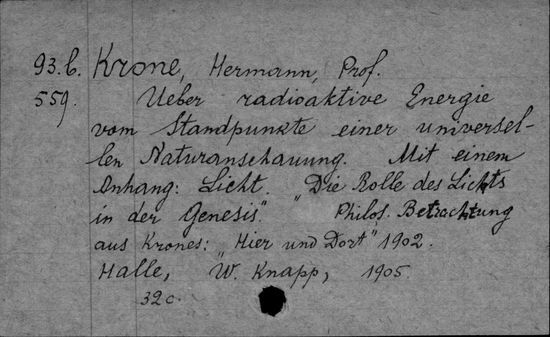 93.b. Krone, Hermann, Prof.
559. Ueber radioaktive Energie
vom Standpunkte einer universel-
len Naturanschauung. Mit einem
Anhang: Licht. "Die Rolle des Lichts
in der Genesis." Philos. Betrachtung
aus Krones: "Hier und Dort" 1902.
Halle, W. Knapp, 1905.
32c.